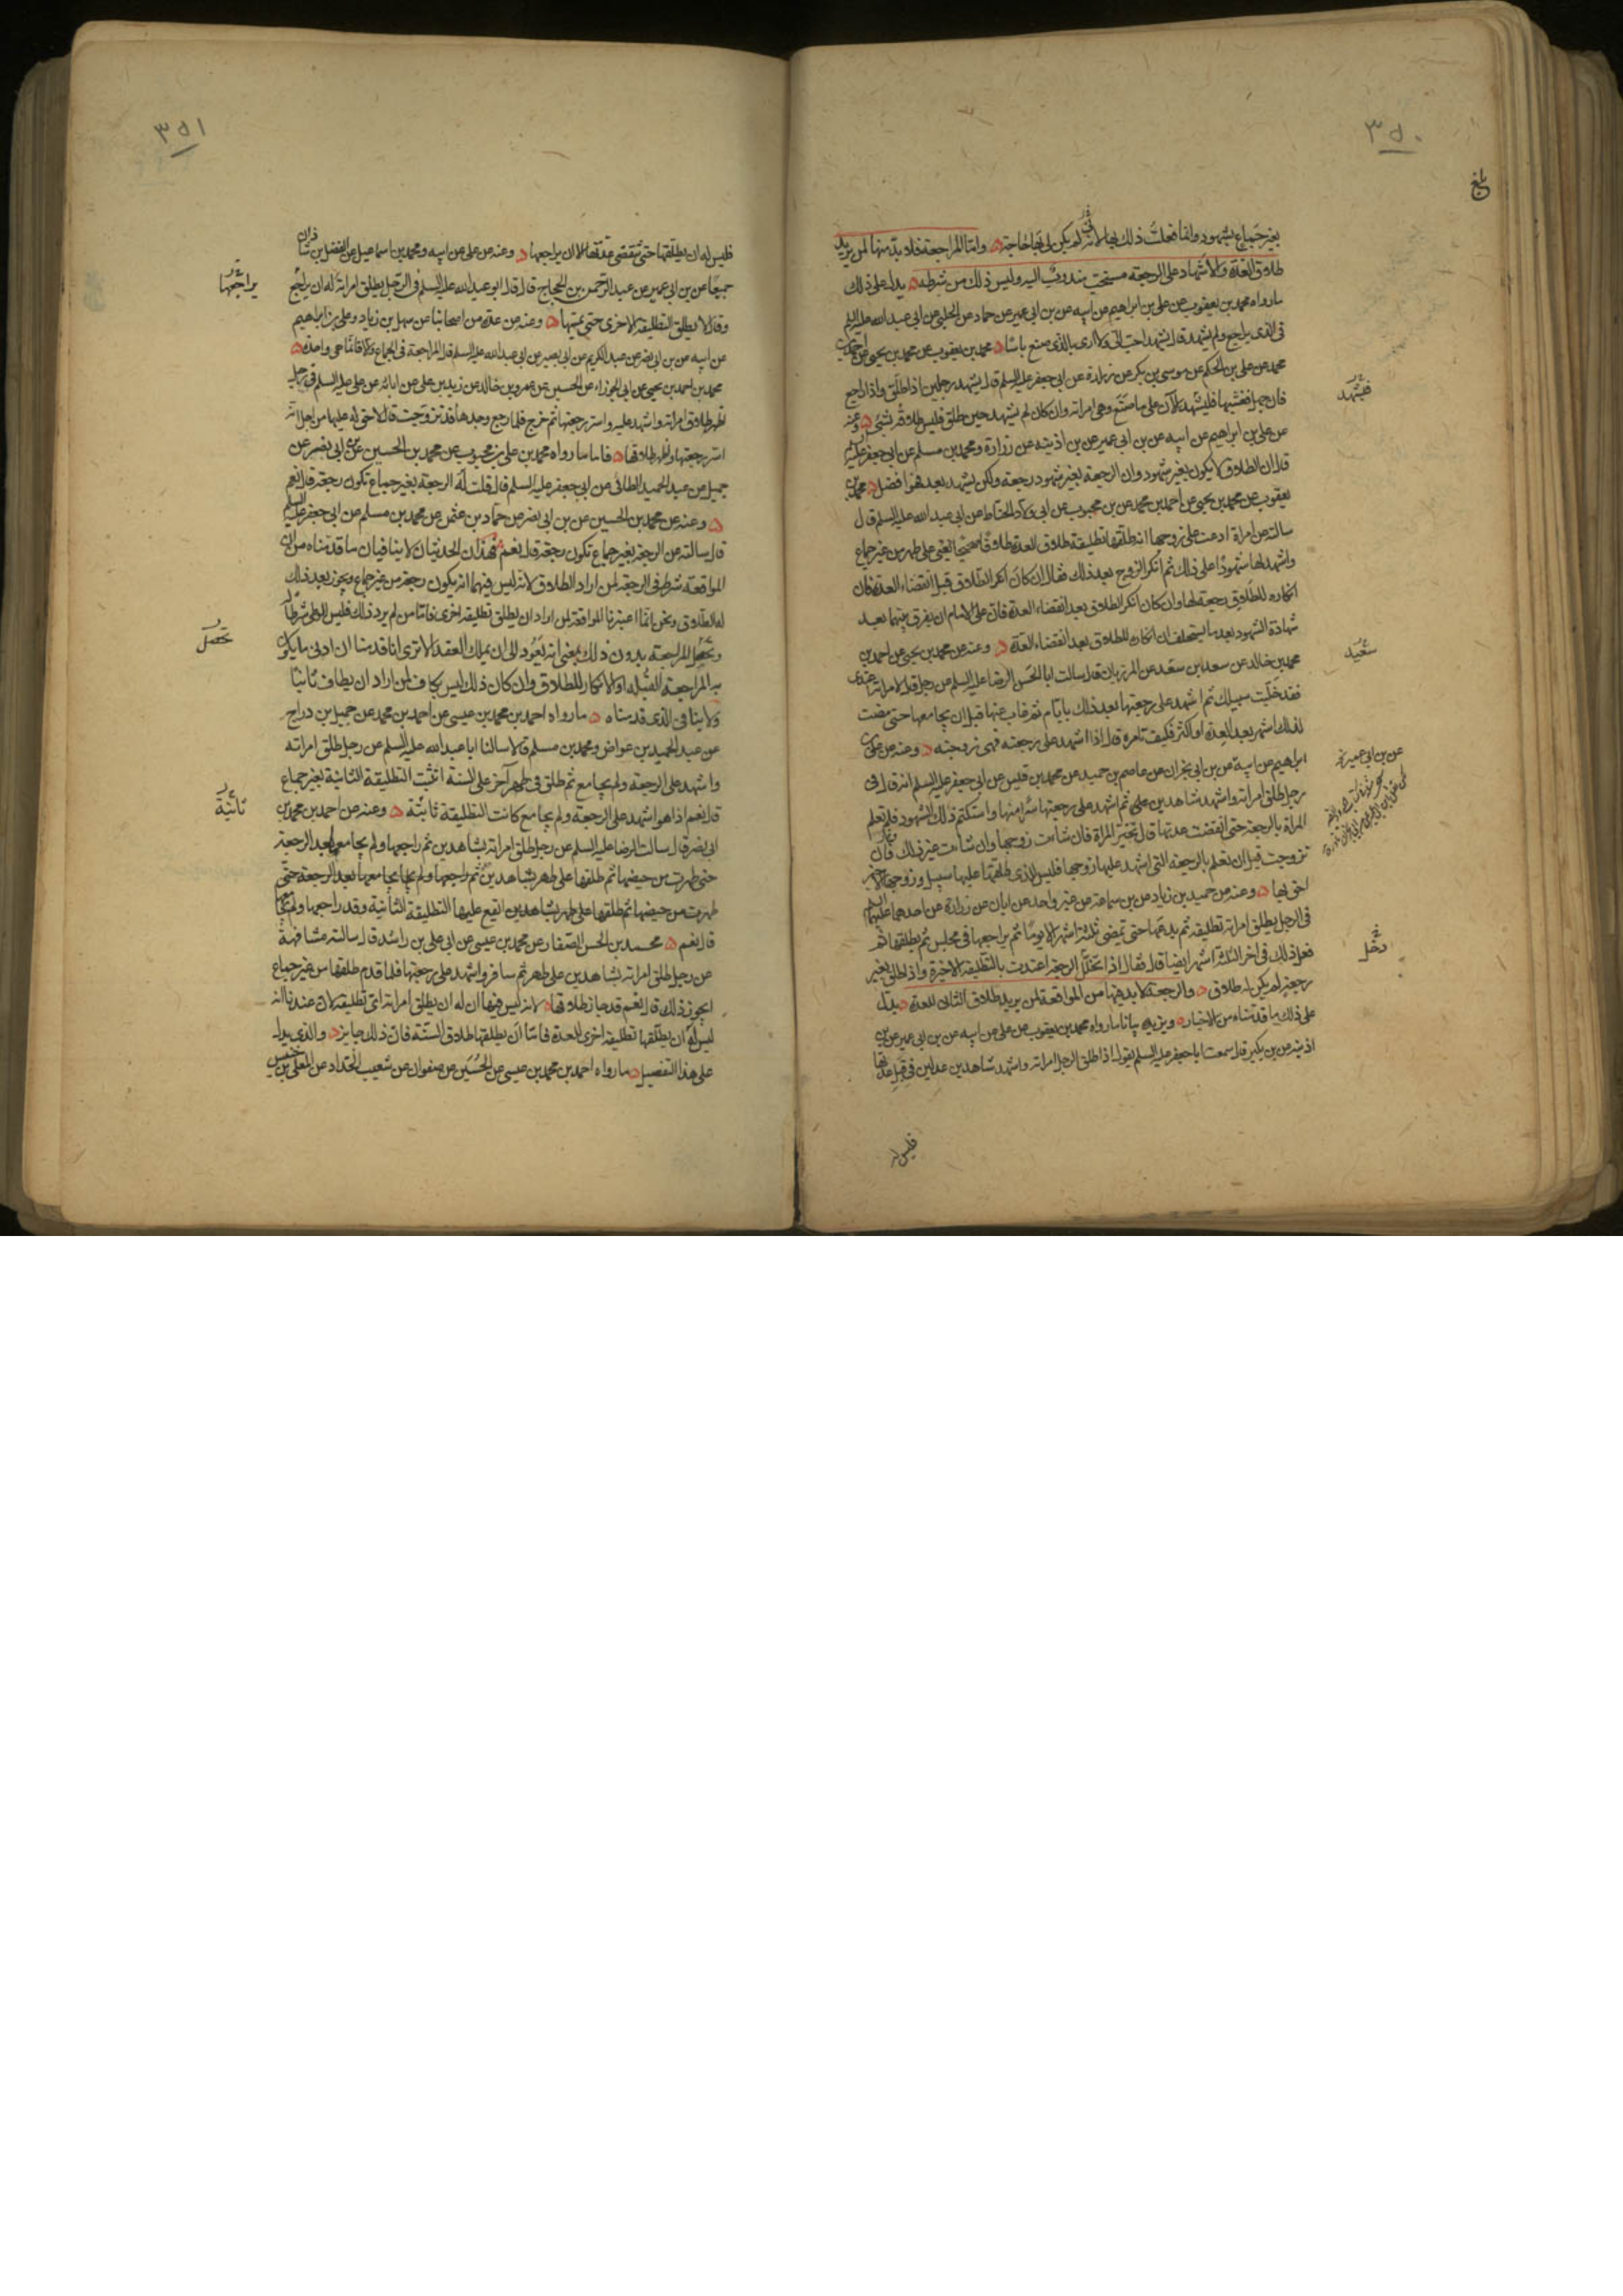 ٣٥٠
بلغ
بغير جماع بشهود وانما فعلت ذلك بها لانه لم يكن لى بها حاجة واما المراجعة فلا بد منها لمن يريد
طلاق العدة والاشهاد على الرجعة مستحب مندوب اليه وليس ذلك من شرطه يدل على ذلك
ما رواه محمد بن يعقوب عن على بن ابراهيم عن ابيه عن بن ابى عمير عن حماد عن الحلبى عن ابى عبد الله عليه السلم
فى الذى يراجع ولم يشهد قال يشهد احب الى ولا ارى بالذى صنع باسا محمد بن يعقوب عن محمد بن يحيى عن احمد بن
محمد عن على بن الحكم عن موسى بن بكر عن زرارة عن ابى جعفر عليه السلم قال يشهد رجلين اذا طلق واذا راجع
فان جهل فغشيها فليشهد الآن على ما صنع وهى امراته وان كان لم يشهد حين طلق فليس طلاقه بشئ وعنه
عن على بن ابراهيم عن ابيه عن بن ابى عمير عن بن اذينة عن زرارة ومحمد بن مسلم عن ابى جعفر عليه السلم
قال ان الطلاق لا يكون بغير شهود وان الرجعة بغير شهود رجعة ولكن ليشهد بعد فهو افضل محمد بن
يعقوب عن محمد بن يحيى عن احمد بن محمد عن بن محبوب عن ابى ولاد الحناط عن ابى عبد الله عليه السلم قال
سالته عن امراة ادعت على زوجها انه طلقها تطليقة طلاق العدة طلاقا صحيحا يعنى على طهر من غير جماع
واشهد لها شهودا على ذلك ثم انكر الزوج بعد ذلك فقال ان كان انكر الطلاق قبل انقضاء العدة فان
انكاره للطلاق رجعة لها وان كان انكر الطلاق بعد انقضاء العدة فان على الامام ان يفرق بينهما بعد
شهادة الشهود بعد ما يستحلف ان انكاره للطلاق بعد انقضاء العدة وعنه عن محمد بن يحيى عن احمد بن
محمد بن خالد عن سعد بن سعد عن المرزبان قال سالت ابا الحسن الرضا عليه السلم عن رجل قال لامراته اعتدى
فقد خليت سبيلك ثم اشهد على رجعتها بعد ذلك بايام ثم غاب عنها قبل ان يجامعها حتى مضت
لذلك اشهر بعد العدة او اكثر فكيف تامره قال اذا اشهد على رجعته فهى زوجته وعنه عن على بن
ابراهيم عن ابيه عن بن ابى نجران عن عاصم بن حميد عن محمد بن قيس عن ابى جعفر عليه السلم انه قال فى
رجل طلق امراته واشهد شاهدين ثم اشهد على رجعتها سرا منها واستكتم ذلك الشهود فلم تعلم
المراة بالرجعة حتى انقضت عدتها قال تخير المراة فان شاءت زوجها وان شاءت غير ذلك فان
تزوجت قبل ان تعلم بالرجعة التى اشهد عليها زوجها فليس للذى طلقها عليها سبيل وزوجها الاخير
احق بها وعنه عن حميد بن زياد عن بن سماعة عن غير واحد عن ابان عن زرارة عن احدهما عليهما السلم
فى الرجل يطلق امراته تطليقة ثم يدعها حتى تمضى ثلثة اشهر الا يوما ثم يراجعها فى مجلس ثم يطلقها ثم
فعل ذلك فى آخر الثلثة اشهر ايضا قال فقال اذا تخلل الرجعة اعتدت بالتطليقة الاخيرة واذا طلق بغير
رجعة لم يكن له طلاق والرجعة لا بد فيها من المواقعة لمن يريد طلاق الثانى للعدة يدل
على ذلك ما قدمناه من الاخبار ويزيده بيانا ما رواه محمد بن يعقوب عن على عن ابيه عن بن ابى عمير عن بن
اذينة عن بن بكير قال سمعت ابا جعفر عليه السلم يقول اذا طلق الرجل امراته واشهد شاهدين عدلين فى قبل عدتها
فليس له
فليشهد
سعيد
عن بن ابى عمير
دخل
٣٥١
فليس له ان يطلقها حتى تنقضى عدتها الا ان يراجعها وعنه عن على عن ابيه ومحمد بن اسماعيل عن الفضل بن شاذان
جميعا عن بن ابى عمير عن عبد الرحمن بن الحجاج قال قال ابو عبد الله عليه السلم فى الرجل يطلق امراته له ان يراجع
وقال لا يطلق التطليقة الاخرى حتى يمسها وعنه عن عدة من اصحابنا عن سهل بن زياد وعلى بن ابراهيم
عن ابيه عن بن ابى نصر عن عبد الكريم عن ابى بصير عن ابى عبد الله عليه السلم قال المراجعة فى الجماع والا فانما هى واحدة
محمد بن احمد بن يحيى عن ابى الجوزاء عن الحسين عن عمرو بن خالد عن زيد بن على عن ابائه عن على عليه السلم فى رجل
اظهر طلاق امراته واشهد عليه واسر رجعتها ثم خرج فلما رجع وجدها قد تزوجت قال لا حق له عليها من اجل انه
اسر رجعتها واظهر طلاقها فاما ما رواه محمد بن على بن محبوب عن محمد بن الحسين عن بن ابى نصر عن
جميل عن عبد الحميد الطائى عن ابى جعفر عليه السلم قال قلت له الرجعة بغير جماع تكون رجعة قال نعم
وعنه عن محمد بن الحسين عن بن ابى نصر عن حماد بن عثمن عن محمد بن مسلم عن ابى جعفر عليه السلم
قال سالته عن الرجعة بغير جماع تكون رجعة قال نعم فهذان الحديثان لا ينافيان ما قدمناه من ان
المواقعة شرط فى الرجعة لمن اراد الطلاق لانه ليس فيهما انه يكون رجعة من غير جماع ويجوز بعد ذلك
له الطلاق ونحن انما اعتبرنا المواقعة لمن اراد ان يطلق تطليقة اخرى فاما من لم يرد ذلك فليس الوطى شرطا له
وتحصل المراجعة بدون ذلك يعنى انه يعود الى ان يملك العقد الا ترى انا قدمنا ان ادنى ما يكون
به المراجعة القبلة او الانكار للطلاق وان كان ذلك ليس بكاف لمن اراد ان يطلق ثانيا
ولا ينافى الذى قدمناه ما رواه احمد بن محمد بن عيسى عن احمد بن محمد عن جميل بن دراج
عن عبد الحميد بن عواض ومحمد بن مسلم قالا سالنا ابا عبد الله عليه السلم عن رجل طلق امراته
واشهد على الرجعة ولم يجامع ثم طلق فى طهر آخر على السنة اتثبت التطليقة الثانية بغير جماع
قال نعم اذا هو اشهد على الرجعة ولم يجامع كانت التطليقة ثابتة وعنه عن احمد بن محمد بن
ابى نصر قال سالت الرضا عليه السلم عن رجل طلق امراته بشاهدين ثم راجعها ولم يجامعها بعد الرجعة
حتى طهرت من حيضها ثم طلقها على طهر بشاهدين ثم راجعها ولم يجامعها بعد الرجعة حتى
طهرت من حيضها ثم طلقها على طهر بشاهدين ايقع عليها التطليقة الثانية وقد راجعها ولم يجامعها
قال نعم محمد بن الحسن الصفار عن محمد بن عيسى عن ابى على بن راشد قال سالته مشافهة
عن رجل طلق امراته بشاهدين على طهر ثم سافر واشهد على رجعتها فلما قدم طلقها من غير جماع
ايجوز ذلك قال نعم قد جاز طلاقها لانه ليس فيها ان له ان يطلق امراته اى تطليقة لان عندنا انه
ليس له ان يطلقها تطليقة اخرى للعدة فاما ان يطلقها طلاق السنة فان ذلك جايز والذى يدل
على هذا التفصيل ما رواه احمد بن محمد بن عيسى عن الحسين عن صفوان عن شعيب الحداد عن المعلى بن خنيس
يراجعها
تحصل
ثانية